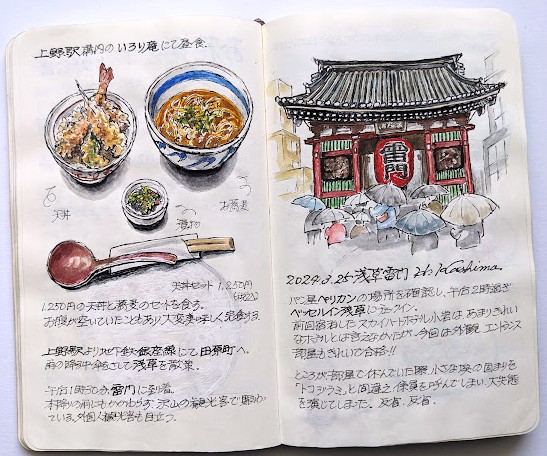 上野駅構内のいろり庵にて昼食.
天丼
お蕎麦
漬物
天丼セット 1,250円
(税込)
1,250円の天丼と蕎麦のセットを食す.
お腹が空いていたこともあり大変美味しく完食す
上野駅より地下鉄・銀座線にて田原町へ.
雨の降る中傘をさして浅草を散策.
午后1時50分,雷門に到着.
本降りの雨にもかかわらず,沢山の観光客で賑わっ
ている.外国人観光客も目立つ.
雷門
2024.3.25 浅草雷門 H.Kashima
パン屋ペリカンの場所を確認し,午后2時過ぎ
ベッセルイン浅草にチェックイン.
前回宿泊したスカイハートホテル小岩はあまりきれい
なホテルとは言えなかったが,今回は外観,エントランス
部屋もきれいで合格!!
ところが部屋で休んでいた際,小さな埃の固まりを
「トコジラミ」と間違え係員を呼んでしまい,大失態
を演じてしまった. 反省.反省.